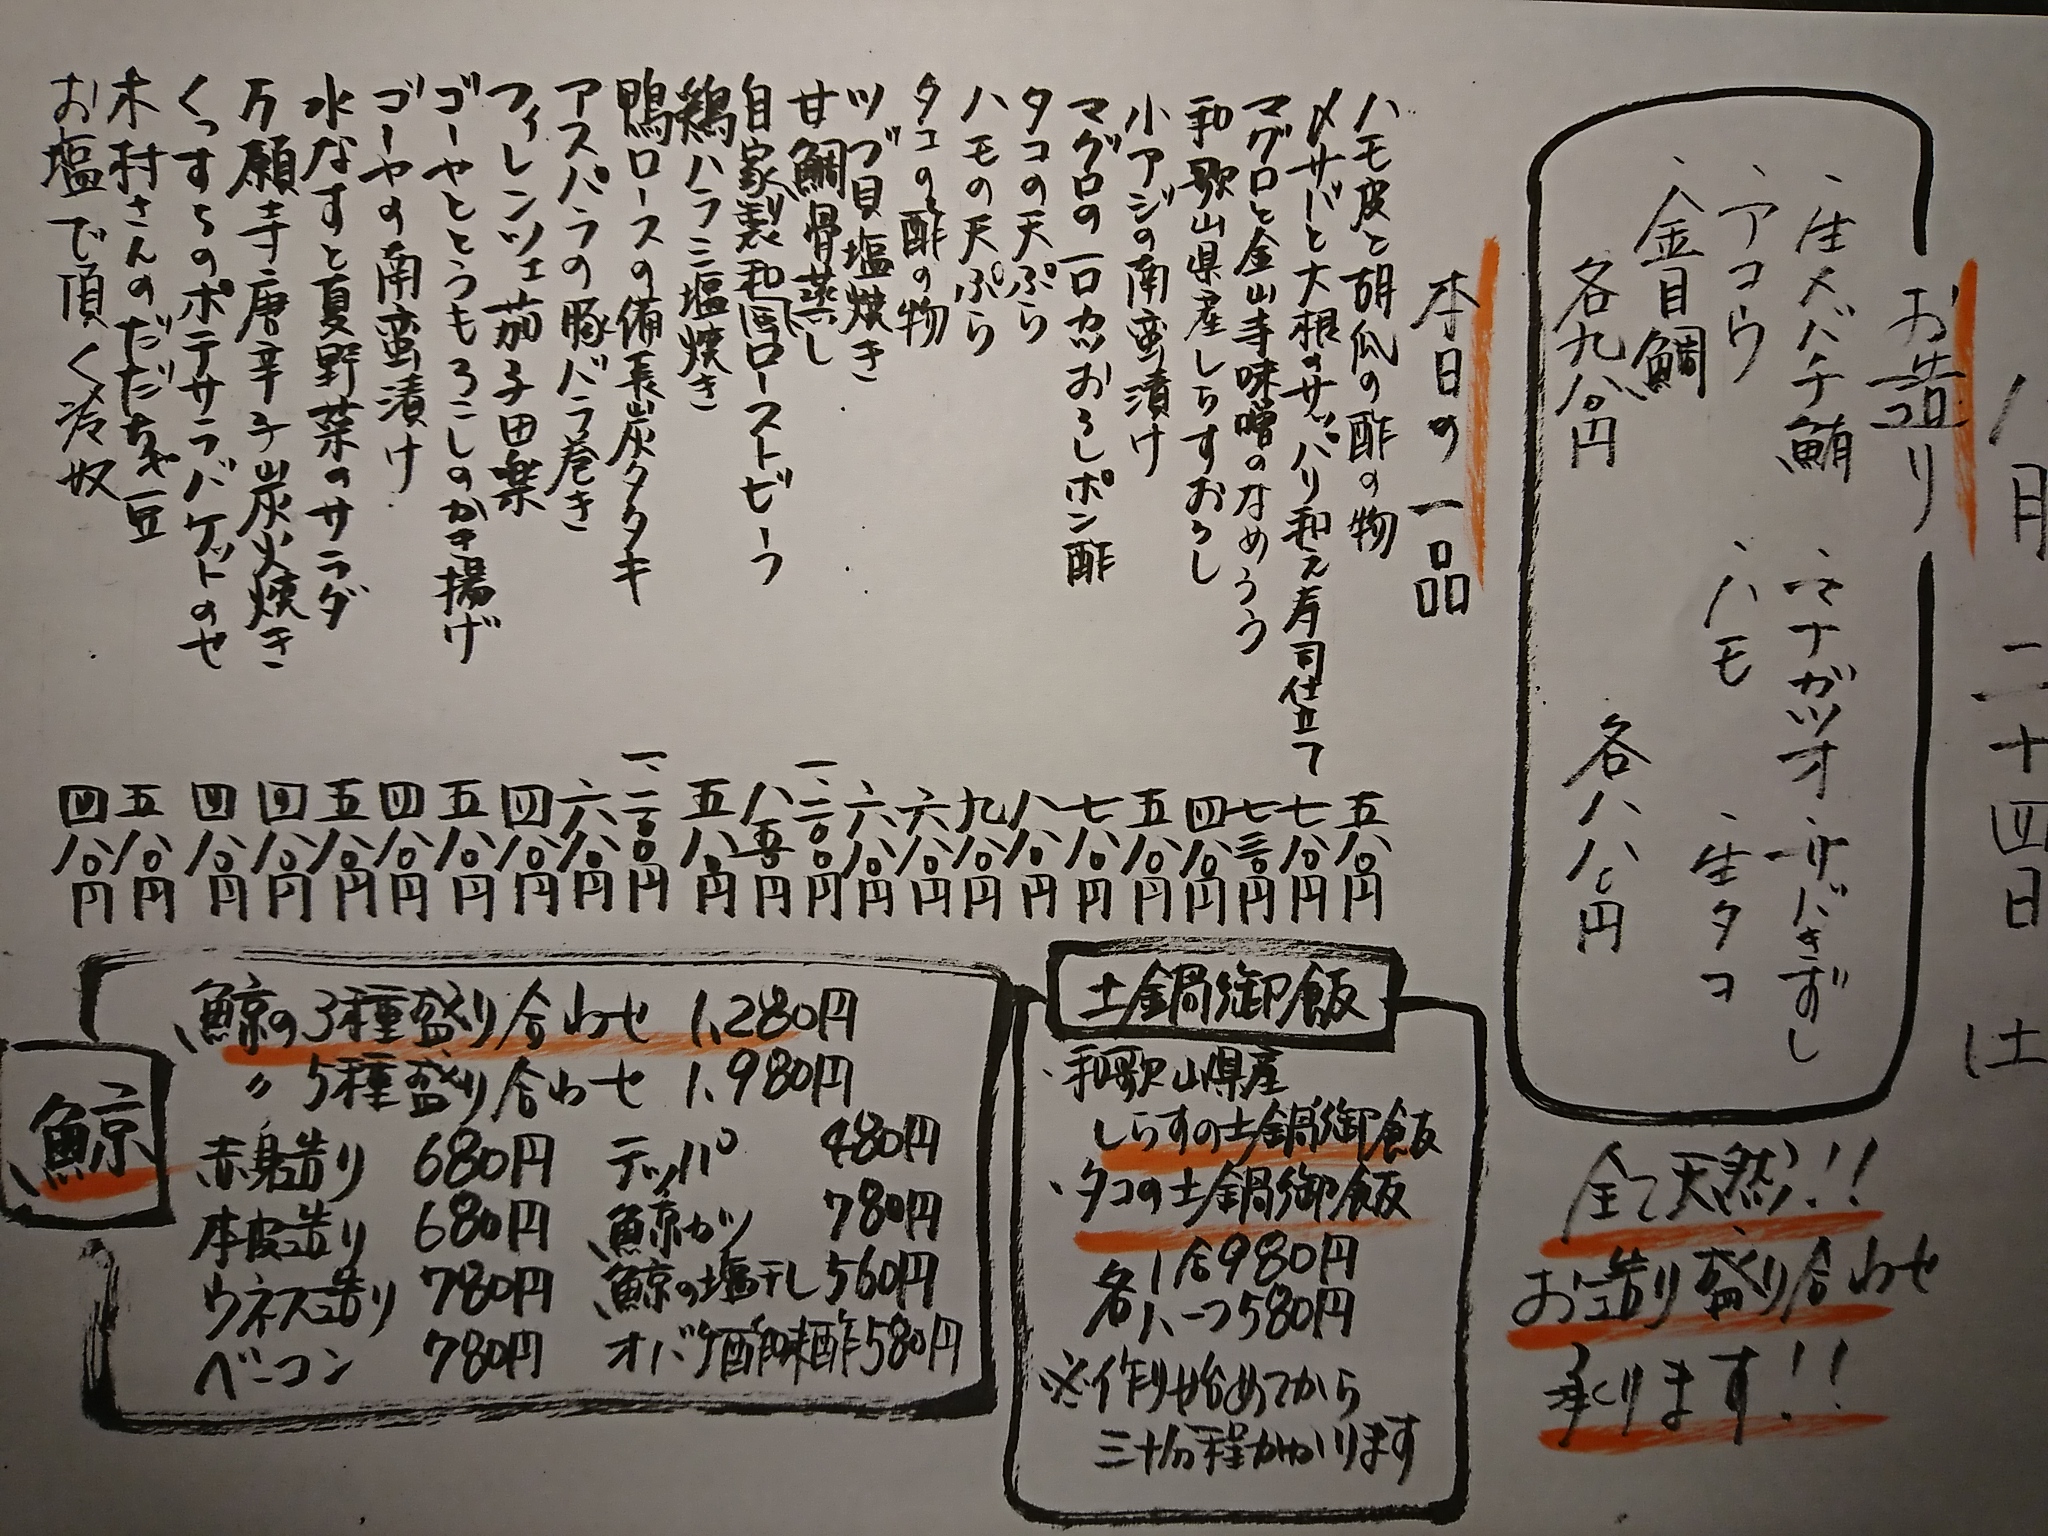 八月二十四日(土
お造り
、生メバチ鮪 、マナガツオ 、サバきずし
、アコウ 、ハモ 、生タコ
、金目鯛
各九八〇円 各八八〇円
全て天然!!
お造り盛り合わせ
承ります!!
本日の一品
ハモ皮と胡瓜の酢の物 五八〇円
〆サバと大根のサッパリ和え寿司仕立て 七八〇円
マグロと金山寺味噌のなめろう 七三〇円
和歌山県産しらすおろし 四八〇円
小アジの南蛮漬け 五八〇円
マグロの一口カツおろしポン酢 七八〇円
タコの天ぷら 八八〇円
ハモの天ぷら 九八〇円
タコの酢の物 六八〇円
ツブ貝塩焼き 六八〇円
甘鯛骨蒸し 一、二〇〇円
自家製和牛ローストビーフ 八五〇円
鶏ハラミ塩焼き 五八〇円
鴨ロースの備長炭タタキ 一、二〇〇円
アスパラの豚バラ巻き 六八〇円
フィレンツェ茄子田楽 四八〇円
ゴーヤととうもろこしのかき揚げ 五八〇円
ゴーヤの南蛮漬け 四八〇円
水なすと夏野菜のサラダ 五八〇円
万願寺唐辛子炭火焼き 四八〇円
くっすちのポテサラバケットのせ 四八〇円
木村さんのだだちゃ豆 五八〇円
お塩で頂く冷奴 四八〇円
土鍋御飯
、和歌山県産
しらすの土鍋御飯
、タコの土鍋御飯
各1合980円
各1、一つ580円
※作り始めてから
三十分程かかります
鯨
鯨の3種盛り合わせ 1,280円
〃 5種盛り合わせ 1,980円
赤身造り 680円 テッパ 480円
本皮造り 680円 鯨カツ 780円
ウネス造り 780円 鯨の塩干し 560円
ベーコン 780円 オバケ酢味酢580円